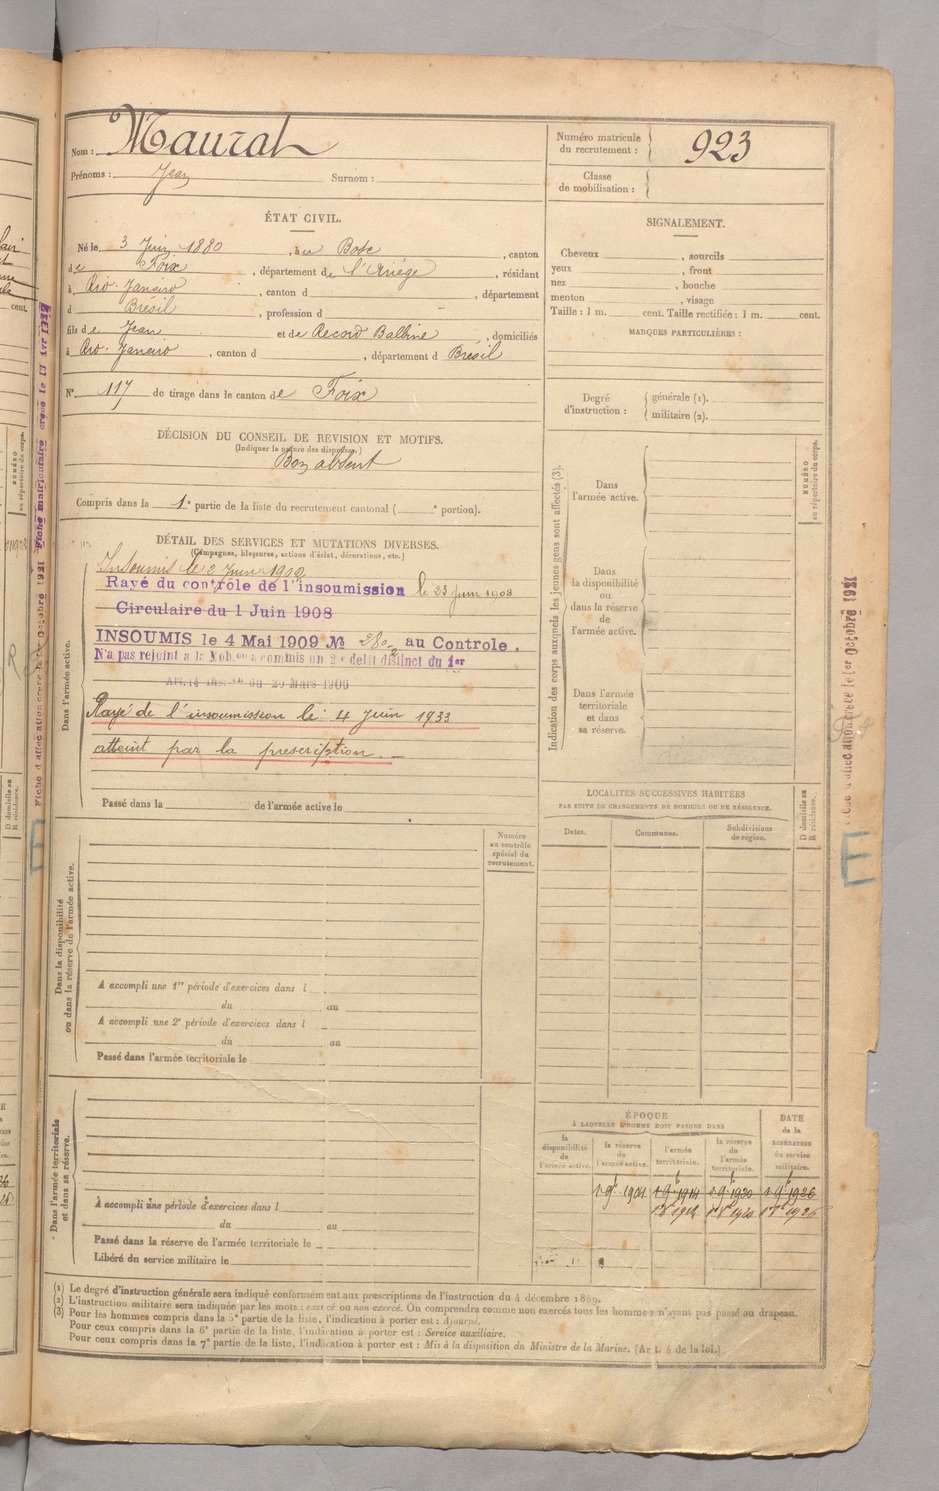 Nom : Maurat
Prénoms : Jean Surnom :
ÉTAT CIVIL.
Né le 3 Juin 1880, à Bosc, canton
de Foix, département de l'Ariège, résidant
à Rio-Janeiro, canton d , département
d Brésil, profession d -
fils de Jean et de Record Balbine, domiciliés
à Rio-Janeiro, canton d , département d Brésil
N° 117 de tirage dans le canton de Foix
DÉCISION DU CONSEIL DE REVISION ET MOTIFS.
(Indiquer la nature des dispenses.)
Bon absent
Compris dans la 1e partie de la liste du recrutement cantonal ( e portion).
DÉTAIL DES SERVICES ET MUTATIONS DIVERSES.
(Campagnes, blessures, actions d'éclat, décorations, etc.)
Insoumis le 2 Juin
Rayé du contrôle de l'insoumission le 23 Juin 1908
Circulaire du 1 Juin 1908
INSOUMIS le 4 Mai 1909 № 280 au Controle.
N'a pas rejoint a la Mob.on a commis un 2e delit distinct du 1er
Art.14 Ins.on du 20 Mars 1906
Rayé de l'insoumission le 4 Juin 1933
atteint par la prescription. —
Dans l'armée active.
Passé dans la de l'armée active le
Numéro
au contrôle
spécial du
recrutement.
Dans la disponibilité
ou dans la réserve de l'armée active.
A accompli une 1re période d'exercices dans l
du au
A accompli une 2e période d'exercices dans l
du au
Passé dans l'armée territoriale le
Dans l'armée territoriale
et dans sa réserve.
A accompli une période d'exercices dans l
du au
Passé dans la réserve de l'armée territoriale le
Libéré du service militaire le
Numéro matricule
du recrutement : 923
Classe
de mobilisation :
SIGNALEMENT.
Cheveux , sourcils
yeux , front
nez , bouche
menton , visage
Taille : 1 m. cent. Taille rectifiée : 1 m. cent.
MARQUES PARTICULIÈRES :
Degré
d'instruction :
générale (1).
militaire (2).
Indication des corps auxquels les jeunes gens sont affectés (3).
Dans
l'armée active.
Dans
la disponibilité
ou
dans la réserve
de
l'armée active.
Dans l'armée
territoriale
et dans
sa réserve.
NUMÉRO
au répertoire du corps.
LOCALITES SUCCESSIVES HABITÉES
PAR SUITE DE CHANGEMENTS DE DOMICILE OU DE RÉSIDENCE.
Dates. Communes. Subdivisions
de région.
D domicile ou
R résidence.
ÉPOQUE
À LAQUELLE L'HOMME DOIT PASSER DANS
la
disponibilité
de
l'armée active.
la réserve
de
l'armée active.
l'armée
territoriale.
la réserve
de
l'armée
territoriale.
DATE
de la
LIBÉRATION
du service
militaire.
1904 1914 1920 1926
(1) Le degré d'instruction générale sera indiqué conformément aux prescriptions de l'instruction du 4 décembre 1889.
(2) L'instruction militaire sera indiquée par les mots : exercé ou non exercé. On comprendra comme non exercés tous les hommes n'ayant pas passé au drapeau.
(3) Pour les hommes compris dans la 5e partie de la liste, l'indication à porter est : Ajourné.
Pour ceux compris dans la 6e partie de la liste, l'indication à porter est : Service auxiliaire.
Pour ceux compris dans la 7e partie de la liste, l'indication à porter est : Mis à la disposition du Ministre de la Marine. (Art. 4 de la loi.)
Fiche d'affectation créée le 1er Octobre 1921
E